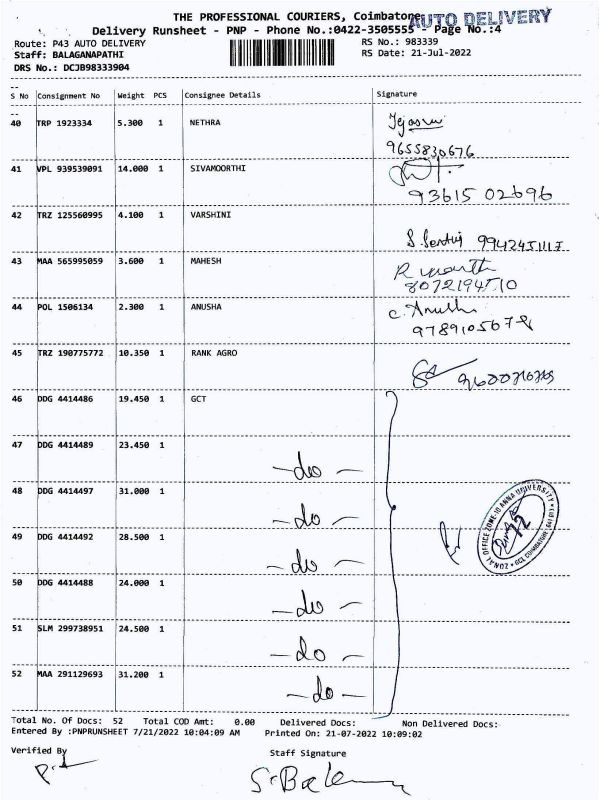 THE PROFESSIONAL COURIERS, Coimbatore
AUTO DELIVERY
Delivery Runsheet - PNP - Phone No.:0422-3505555 - Page No.:4
Route: P43 AUTO DELIVERY
RS No.: 983339
Staff: BALAGANAPATHI
RS Date: 21-Jul-2022
DRS No.: DCJB98333904
S No Consignment No Weight PCS Consignee Details Signature
40 TRP 1923334 5.300 1 NETHRA
9655830676
41 VPL 939539091 14.000 1 SIVAMOORTHI
93615 02696
42 TRZ 125560995 4.100 1 VARSHINI
43 MAA 565995059 3.600 1 MAHESH
8072194510
44 POL 1506134 2.300 1 ANUSHA C. Anusha
9789105678
45 TRZ 190775772 10.350 1 RANK AGRO
46 DDG 4414486 19.450 1 GCT
47 DDG 4414489 23.450 1 -do-
48 DDG 4414497 31.000 1 -do-
49 DDG 4414492 28.500 1 -do-
50 DDG 4414488 24.000 1 -do-
51 SLM 299738951 24.500 1 -do-
52 MAA 291129693 31.200 1 -do-
ZONAL OFFICE ZONE-10 ANNA UNIVERSITY • GCT, COIMBATORE, 641 013 •
Total No. Of Docs: 52 Total COD Amt: 0.00 Delivered Docs: Non Delivered Docs:
Entered By :PNPRUNSHEET 7/21/2022 10:04:09 AM Printed On: 21-07-2022 10:09:02
Verified By
Staff Signature